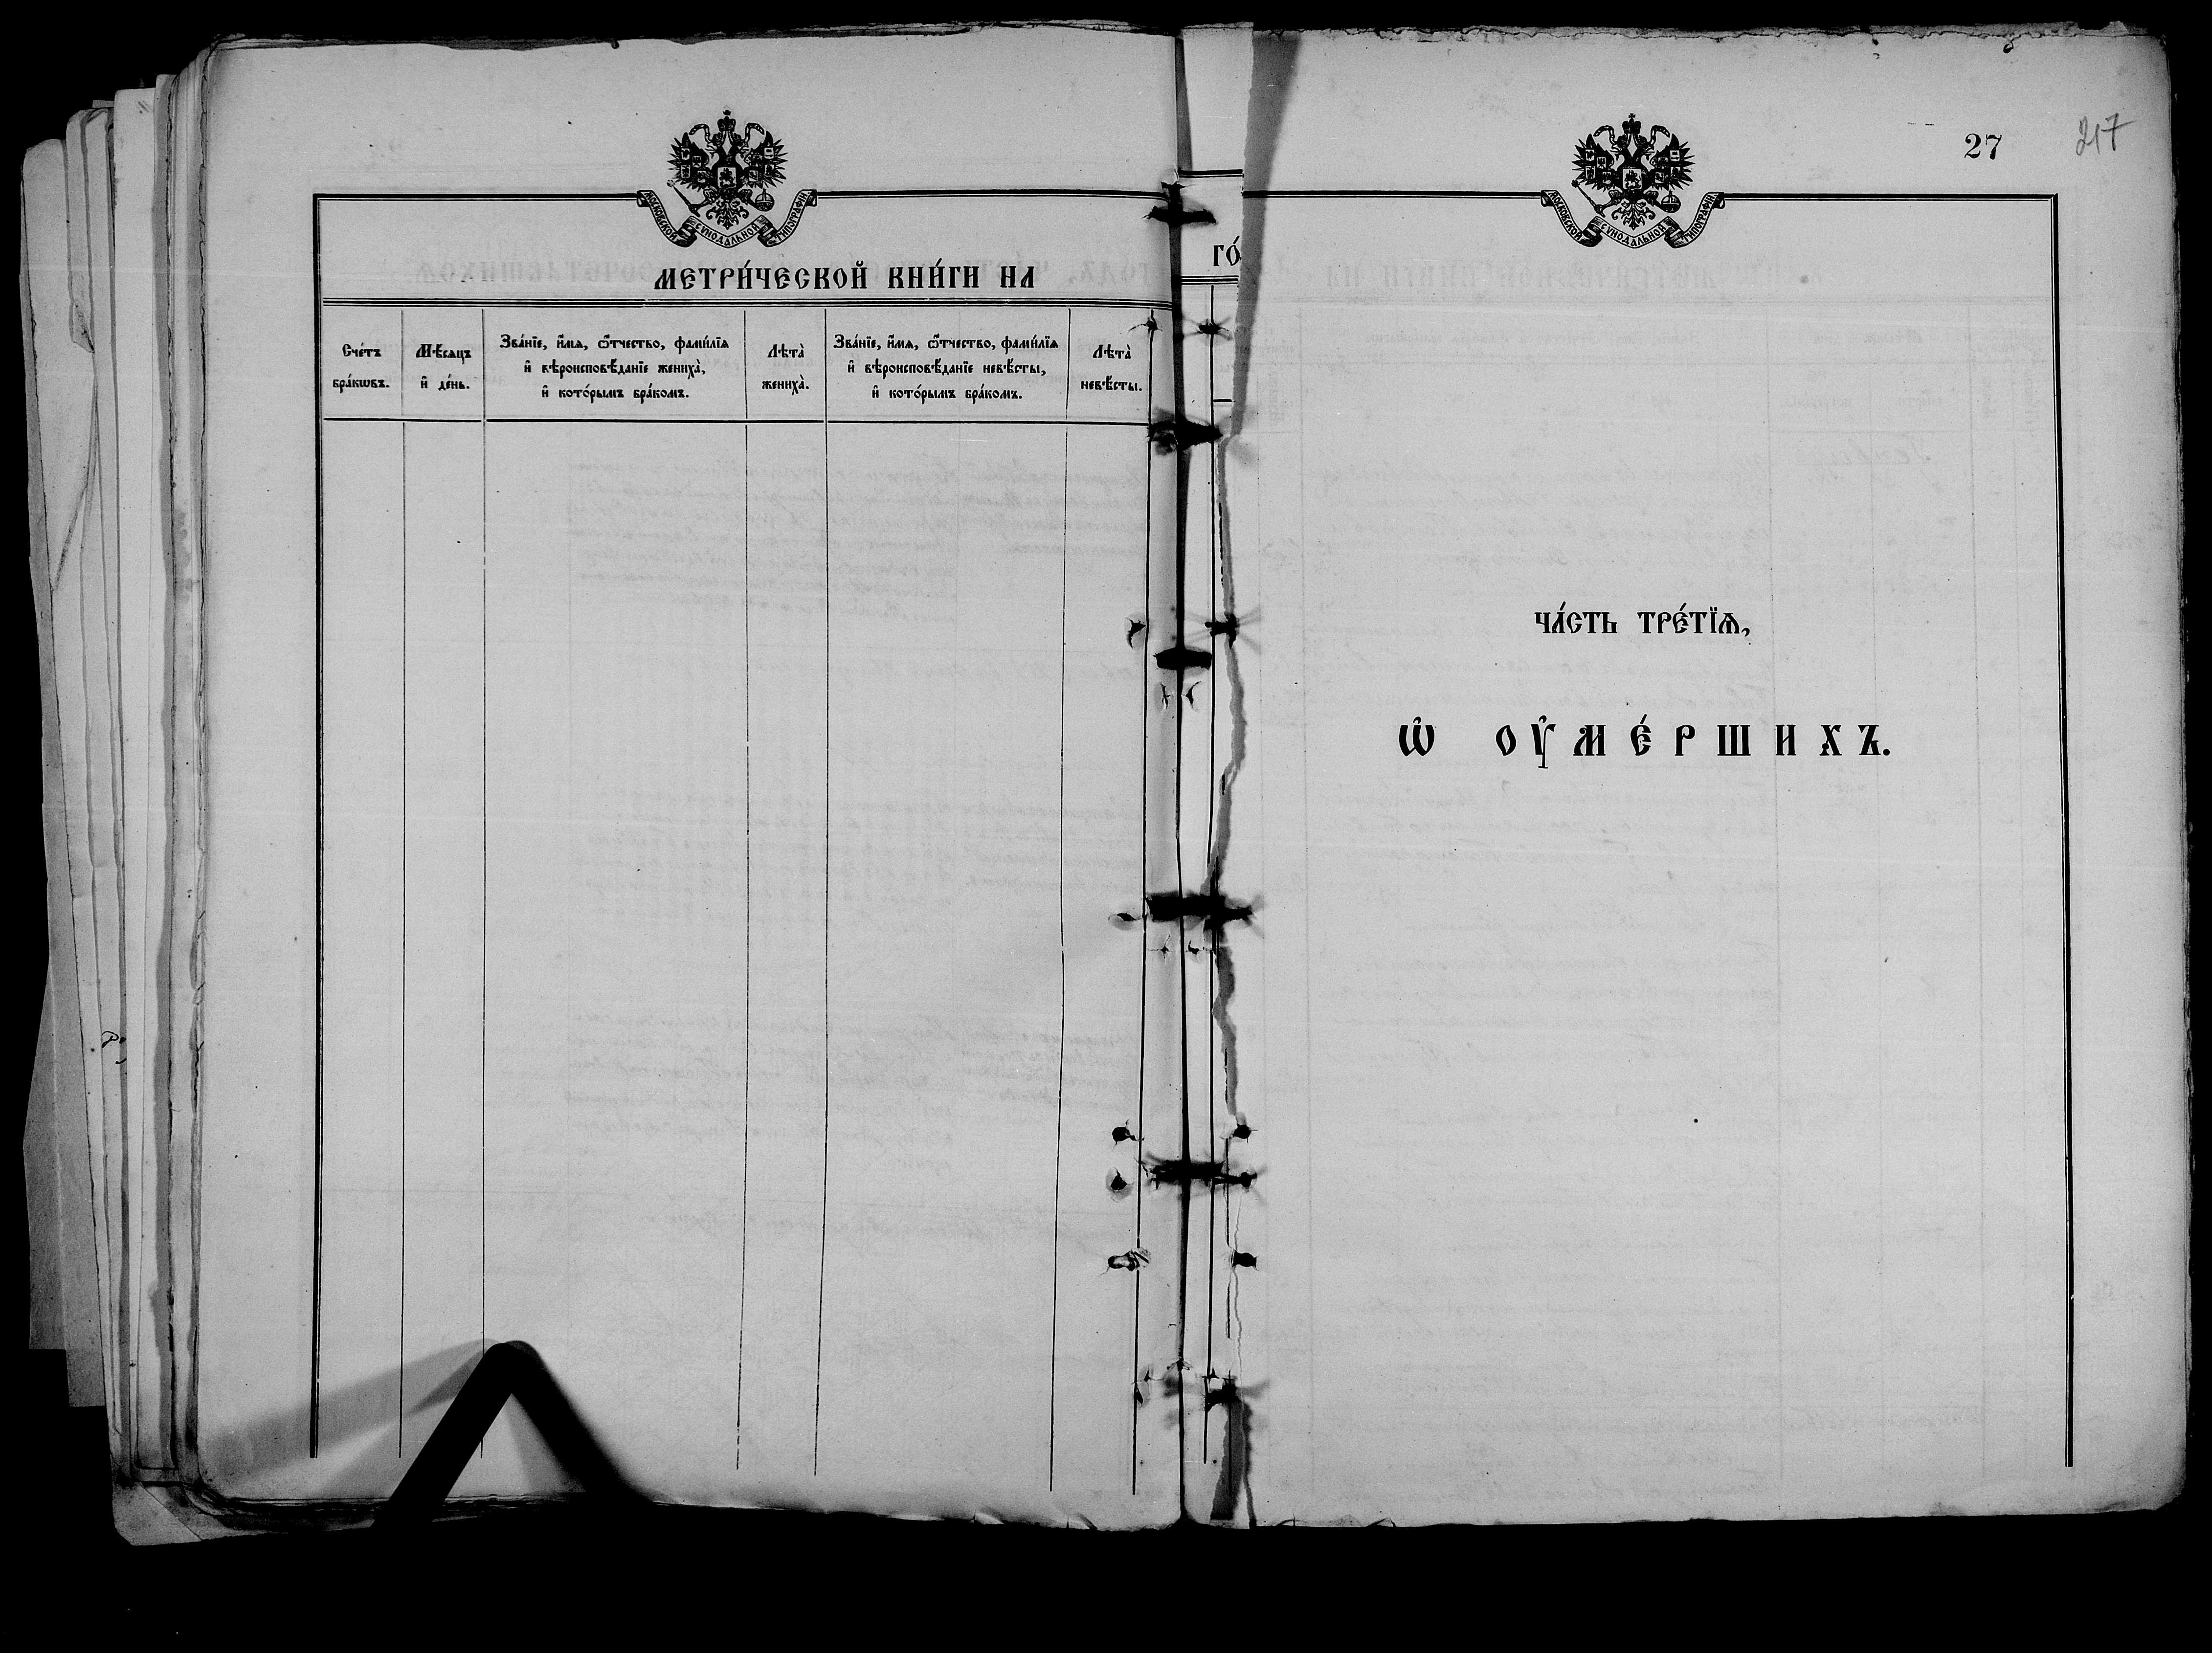 МОСКОВСКОЙ СѴНОДАЛЬНОЙ ТИПОГРАФІИ
МЕТРИ́ЧЕСКОЙ КНИ́ГИ НА
Сче́тъ
бра́кѡвъ.
Мѣ́сяцъ
и҆ де́нь.
Зва́нїе, и҆́мѧ, ѻ҆́тчество, фами́лїѧ
и҆ вѣроисповѣ́данїе жениха̀,
и҆ кото́рымъ бра́комъ.
Лѣта̀
жениха̀.
Зва́нїе, и҆́мѧ, ѻ҆́тчество, фами́лїѧ
и҆ вѣроисповѣ́данїе невѣ́сты,
и҆ кото́рымъ бра́комъ.
Лѣта̀
невѣ́сты.
ГО́
27
217
МОСКОВСКОЙ СѴНОДАЛЬНОЙ ТИПОГРАФІИ
ЧА́СТЬ ТРЕ́ТЇѦ,
Ѡ҆ ОУ҆МЕ́РШИХЪ.